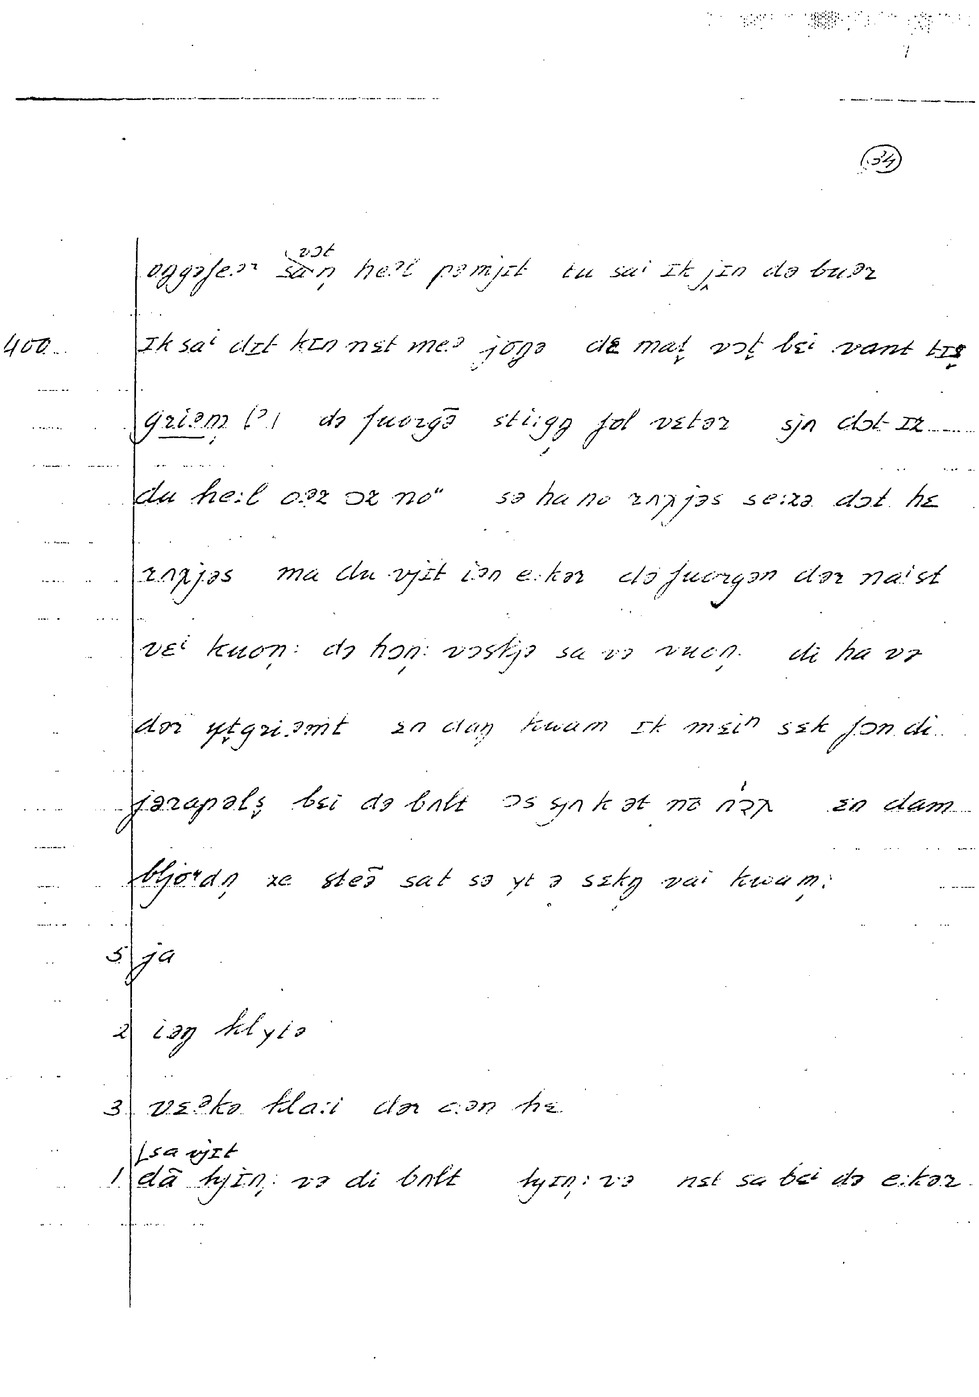 34
vɔt
oggəfeər sān̩ heəl pəmjɪt tu saⁱ ɪk jɪn də buər
400 ɪk saⁱ dɪt kɪn nɛt meə jōŋə dɛ mat̩ vɔt̩ bɛi vant
griəm̩ (?) də fuorgə̄ fol vɛtər sjn dɔt ɪk
du he:l oər ɔr noᵘ sə ha no rʌχjəs se:rə dɔt hɛ
rʌχjəs ma du vjɪt iən e:kər də fuorgən dər naⁱst
vɛⁱ kuon̩: də hɔn̩: vəskjə sa və vuon̩: di ha və
dər yt̩griəmt ɛn daŋ kwam ɪk mɛiⁿ sɛk fɔn di
jərapəls̩ bɛi də bʌlt ɔs sjn k ət nō nəχ ɛn dam
bljordn̩ ze steə̄ sat sə yt ə sɛkŋ̩ vai kwam̩:
5 ja
2 iəŋ klytə
3 vɛəkə kla:i dər ɔ:ən hɛ
⌊sa vjɪt
1 dā hyɪn̩: və di bʌlt hyɪn̩: və nɛt sa bɛⁱ də e:kər